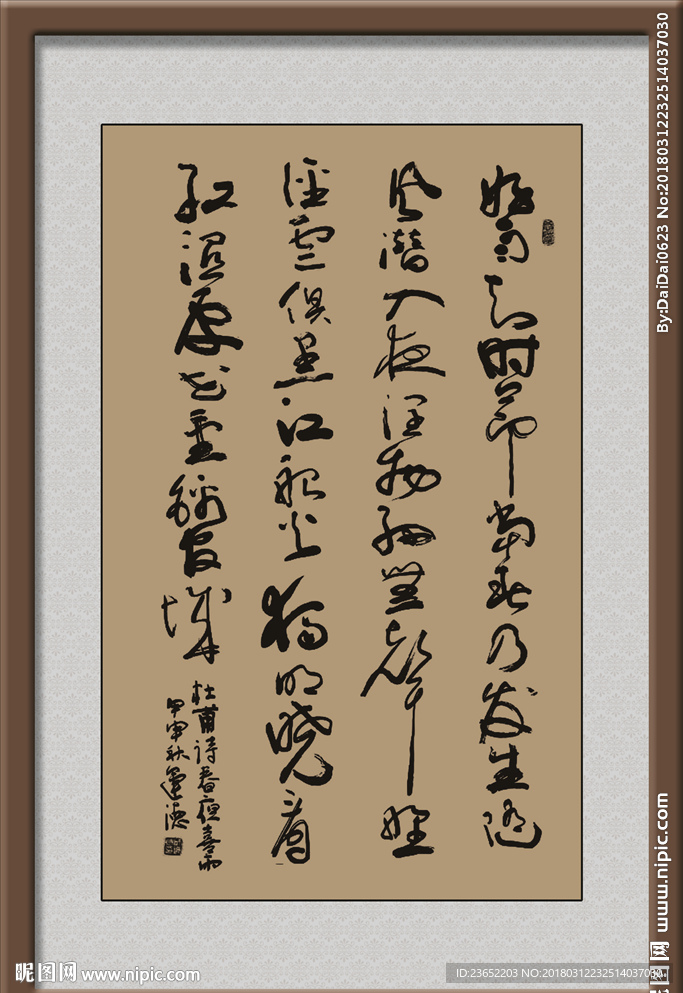 好雨知时节当春乃发生随
风潜入夜润物细無聲野
径雲俱黑江船火獨明晓看
红湿处花重锦官城
杜甫诗春夜喜雨
甲申秋運德
By:DaiDai0623 No:20180312232514037030
昵图网 www.nipic.com
昵图网 www.nipic.com
ID:23652203 NO:20180312232514037030